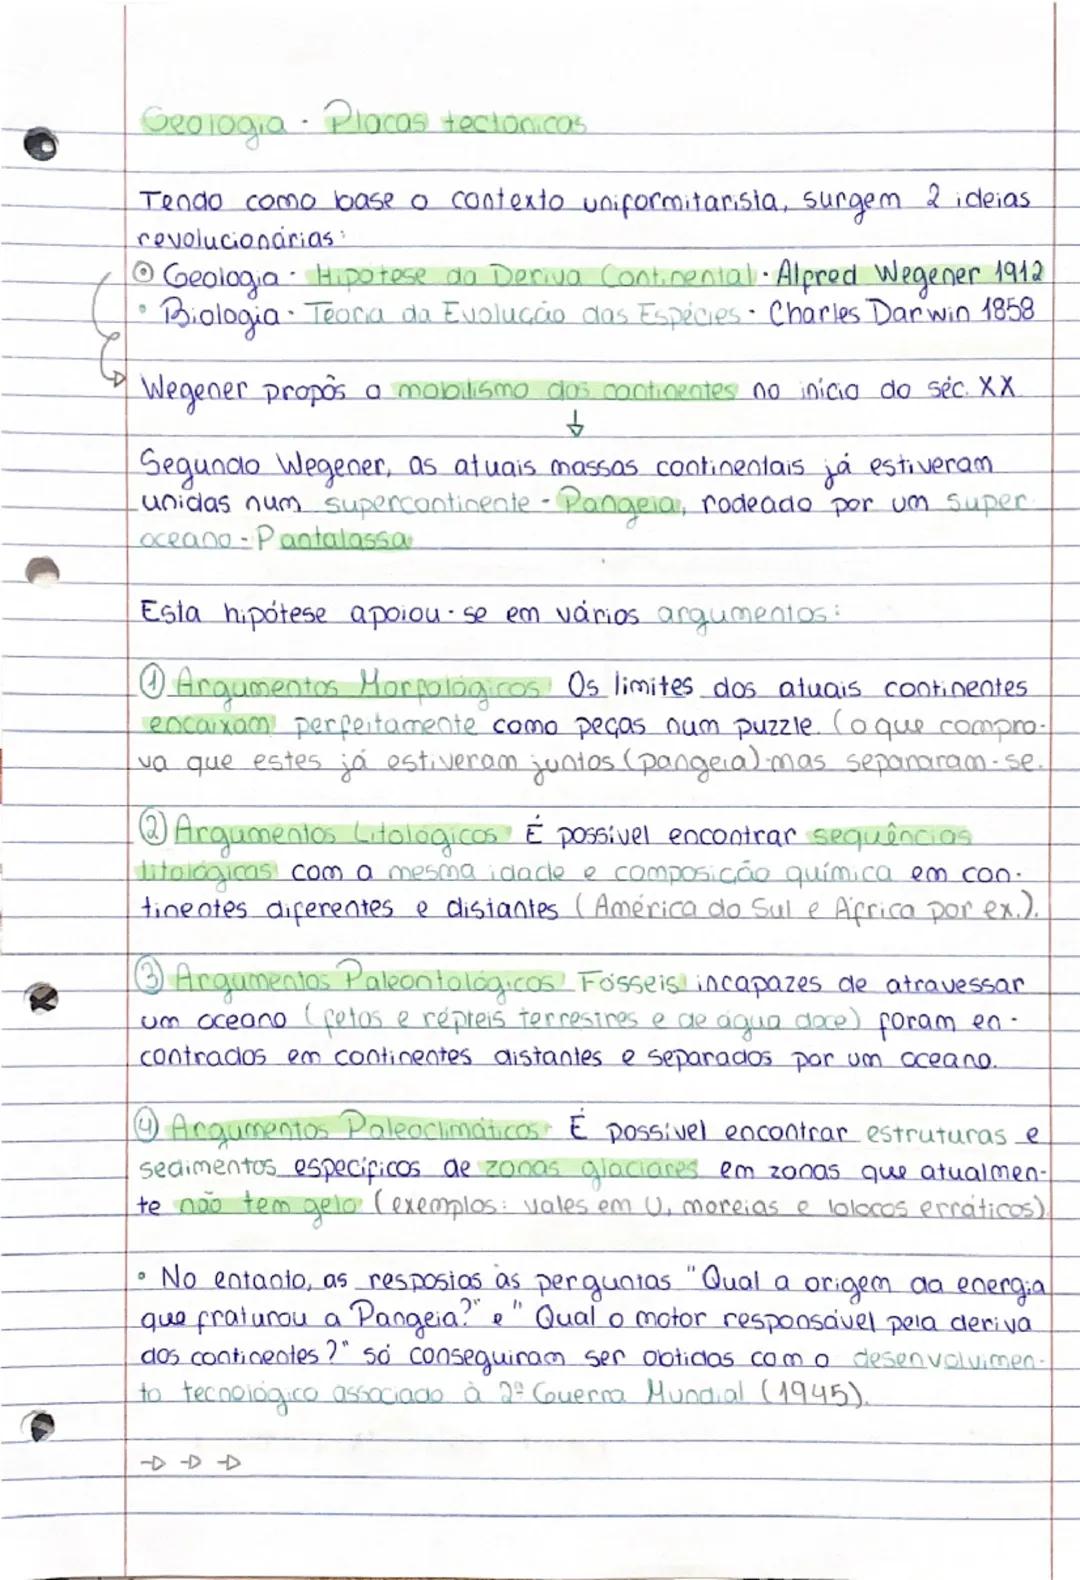 Geologia · Placas tectónicas
Tendo como base o contexto uniformitarista, surgem 2 ideias
revolucionárias:
Geologia · Hipótese da Deriva Continental · Alfred Wegener 1912
• Biologia · Teoria da Evolução das Espécies · Charles Darwin 1858
Wegener propôs o mobilismo dos continentes no início do séc. XX
Segundo Wegener, as atuais massas continentais já estiveram
unidas num supercontinente - Pangeia, rodeado por um super
oceano - Pantalassa
Esta hipótese apoiou-se em vários argumentos:
① Argumentos Morfológicos Os limites dos atuais continentes
encaixam perfeitamente como peças num puzzle. (o que compro-
va que estes já estiveram juntos (pangeia) mas separaram-se.
② Argumentos Litológicos É possível encontrar sequências
litológicas com a mesma idade e composição química em con-
tinentes diferentes e distantes (América do Sul e África por ex.).
③ Argumentos Paleontológicos Fósseis incapazes de atravessar
um oceano (fetos e répteis terrestres e de água doce) foram en-
contrados em continentes distantes e separados por um oceano.
④ Argumentos Paleoclimáticos É possível encontrar estruturas e
sedimentos específicos de zonas glaciares em zonas que atualmen-
te não tem gelo (exemplos: vales em U, moreias e blocos erráticos)
• No entanto, as respostas às perguntas "Qual a origem da energia
que fraturou a Pangeia?" e "Qual o motor responsável pela deriva
dos continentes?" só conseguiram ser obtidas com o desenvolvimen-
to tecnológico associado à 2ª Guerra Mundial (1945).